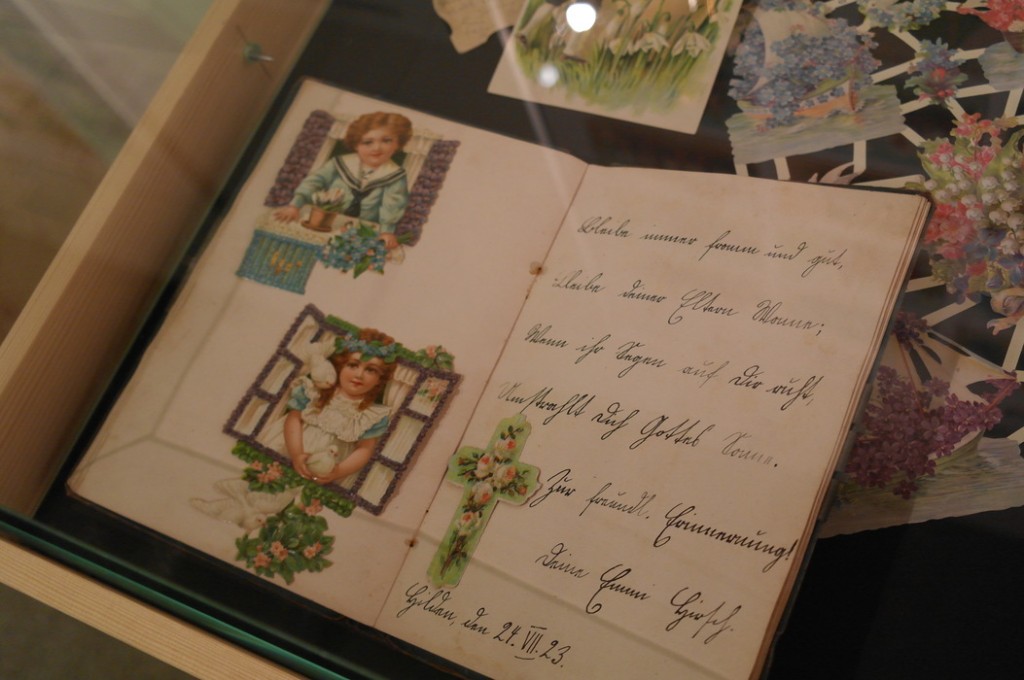 Bleibe immer fromm und gut,
Bleibe deiner Eltern Wonne;
Wenn ihr Segen auf Dir ruht,
Umstrahlt Dich Gottes Sonne.
Zur freundl. Erinnerung!
Deine Emmi Hirsch.
Hilden, den 24. VII. 23.